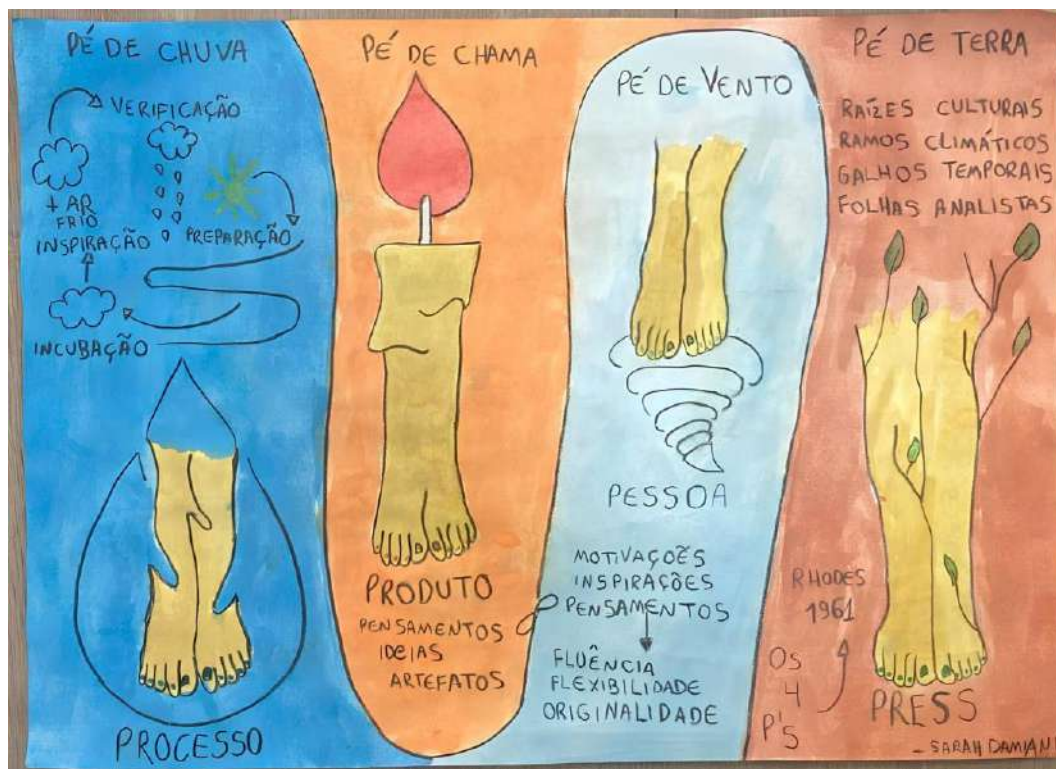 PÉ DE CHUVA
VERIFICAÇÃO
+ AR
FRIO
INSPIRAÇÃO
PREPARAÇÃO
INCUBAÇÃO
PROCESSO
PÉ DE CHAMA
PRODUTO
PENSAMENTOS
IDEIAS
ARTEFATOS
PÉ DE VENTO
PESSOA
MOTIVAÇÕES
INSPIRAÇÕES
PENSAMENTOS
FLUÊNCIA
FLEXIBILIDADE
ORIGINALIDADE
PÉ DE TERRA
RAÍZES CULTURAIS
RAMOS CLIMÁTICOS
GALHOS TEMPORAIS
FOLHAS ANALISTAS
RHODES
1961
OS
4
P'S
PRESS
- SARAH DAMIANI